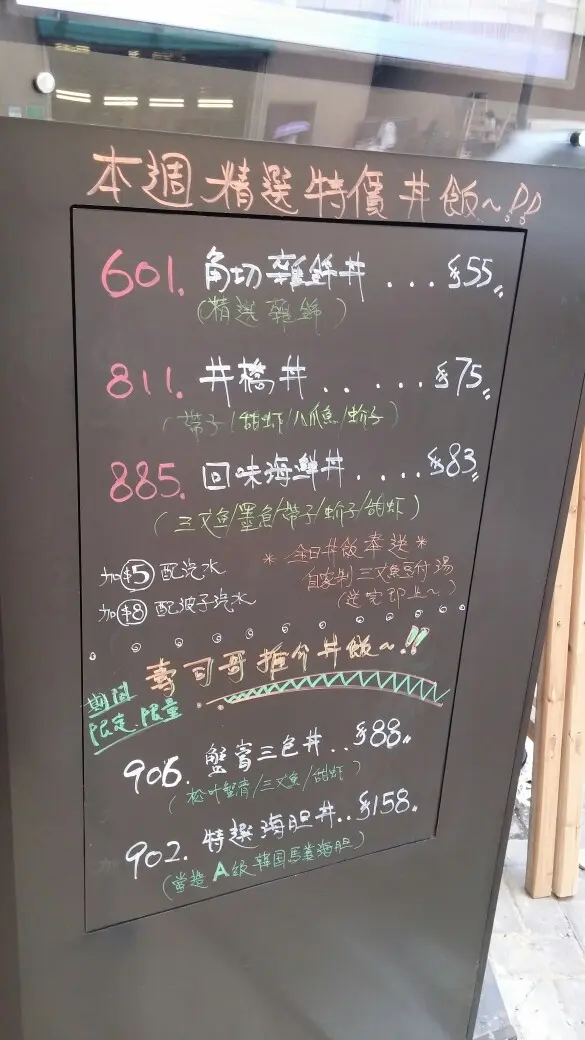 本週精選特價丼飯~!!
601. 角切雜錦丼 ... $55
(精選雜錦)
811. 丼橋丼 ...... $75
(帶子/甜虾/八爪魚/蚧子)
885. 回味海鮮丼 .... $83
(三文魚/墨魚/帶子/蚧子/甜虾)
加$5 配汽水
加$8 配波子汽水
* 全日丼飯奉送 *
自家制三文魚豆付湯
(送完即止~)
壽司哥推介丼飯~!!
期間
限定、限量
906. 蟹膏三色丼 .. $88
(松叶蟹膏/三文魚/甜虾)
902. 特選海胆丼 .. $158
(當造A级韓国馬糞海胆)